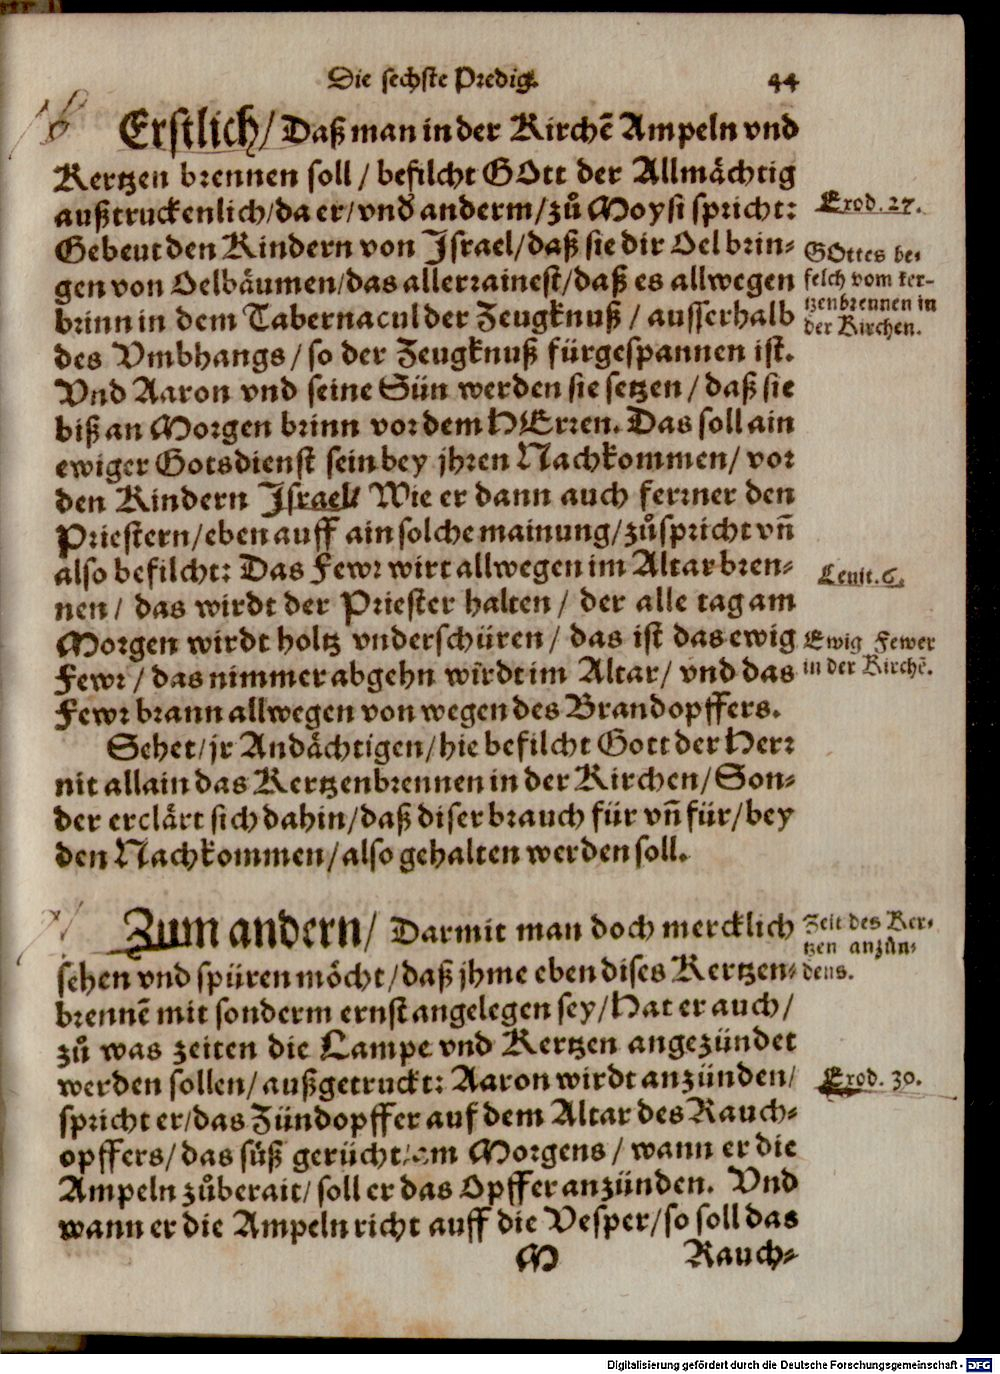 Die sechste Predig. 44
Erstlich/ Daß man in der Kirchē Ampeln vnd
Kertzen brennen soll / befilcht GOtt der Allmächtig
außtruckenlich/da er/vnd anderm/zů Moysi spricht:
Exod. 27.
Gebeut den Kindern von Israel/daß sie dir Oel brin-
gen von Oelbäumen/das allerrainest/daß es allwegen
brinn in dem Tabernacul der Zeugknuß / ausserhalb
GOttes be-
felch vom ker-
tzenbrennen in
der Kirchen.
des Vmbhangs/so der Zeugknuß fürgespannen ist.
Vnd Aaron vnd seine Sün werden sie setzen/daß sie
biß an Morgen brinn vor dem HErren. Das soll ain
ewiger Gotsdienst sein bey jhren Nachkommen/ vor
den Kindern Israel/ Wie er dann auch ferrner den
Priestern/eben auff ain solche mainung/zůspricht vñ
also befilcht: Das Fewr wirt allwegen im Altar bren-
Leuit. 6.
nen/ das wirdt der Priester halten/ der alle tag am
Morgen wirdt holtz vnderschüren/ das ist das ewig
Fewr/das nimmer abgehn wirdt im Altar/ vnd das
Ewig Fewer
in der Kirchē.
Fewr brann allwegen von wegen des Brandopffers.
Sehet/jr Andächtigen/hie befilcht Gott der Herr
nit allain das Kertzenbrennen in der Kirchen/Son-
der erclärt sich dahin/daß diser brauch für vñ für/bey
den Nachkommen/also gehalten werden soll.
Zum andern/ Darmit man doch mercklich
sehen vnd spüren möcht/daß jhme eben dises Kertzen-
Zeit des Ker-
tzen anzün-
dens.
brennē mit sonderm ernst angelegen sey/Hat er auch/
zů was zeiten die Lampe vnd Kertzen angezündet
werden sollen/außgetruckt: Aaron wirdt anzünden/
Exod. 30.
spricht er/das Zündopffer auf dem Altar des Rauch-
opffers/das süß gerücht/am Morgens/wann er die
Ampeln zůberait/soll er das Opffer anzünden. Vnd
wann er die Ampeln richt auff die Vesper/so soll das
M Rauch-
Digitalisierung gefördert durch die Deutsche Forschungsgemeinschaft - DFG